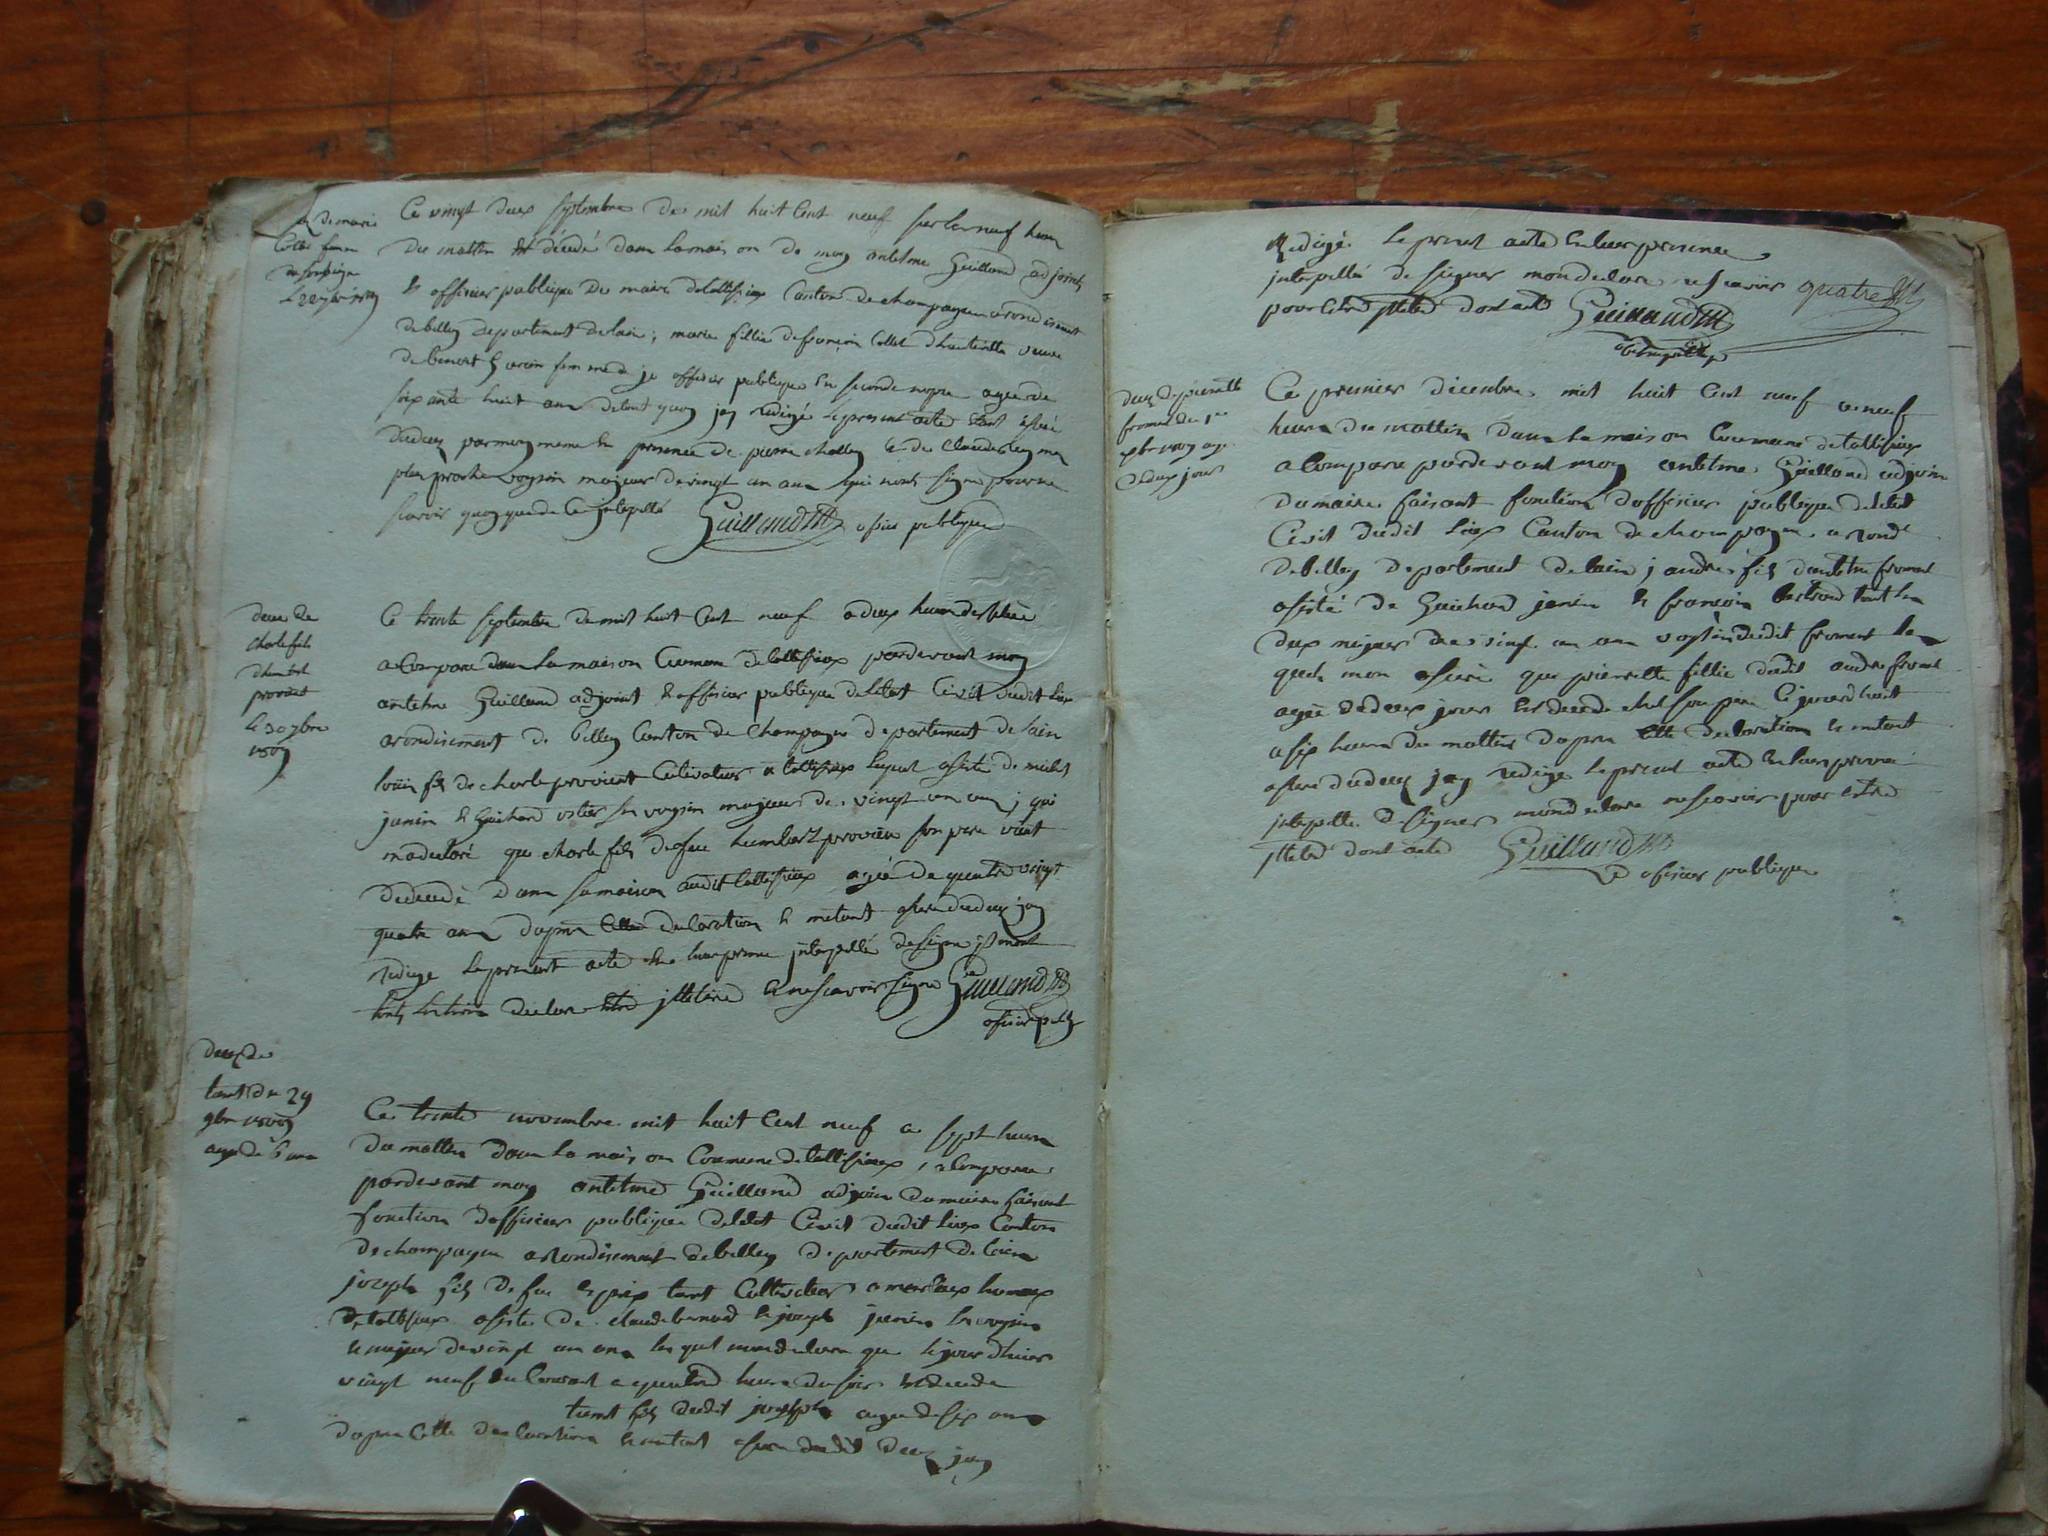 de marie
Collet femme
Ce vingt deux septembre de mil huit Cent neuf sur les neuf heure
du mattin Est décédé dans la maison de moy antelme Guilland adjoint
& officier publique du maire detallissieux Canton de champagne arondisement
debelley departement delain; marie fillie defrançois Collet dhauteville veuve
de benoit femme de je officier publique En seconde nopce agee de
soixante huit ans detout quoy jay redigé le present acte
dudeces par moy meme En presence de pierre challey & de Claude
plus proche voysin majeur devingt un ans qui nont signé pour ne
scavoir quoy que de Ce jntepellé Guilland officier publique
deces de
Charle fils
dhumbert
provient
le 30 7bre
1809
Ce trente septembre de mil huit Cent neuf a deux heure
a Comparu dans la maison Commune detallissieux pardevant moy
antelme Guilland adjoint & officier publique deletat Civil dudit lieu
arondisement de belley Canton de Champagne departement de lain
louis fils de charle provient Cultivateur a tallissieux lequel asisté de michel
janin & Guichard ses voysin majeur de vingt un ans; qui
madeclaré que charle fils defeu humbert provient son pere vient
dedeceder dans sa maison audit tallissieux agé de quatre vingt
quatre ans dapres Cette declaration & metant asuré dudeces jay
redigé le present acte En leur presence jntepellé designer
declare Etre jlleteré & ne scavoir signer Guilland
officier publique
deces de
tant du 29
9bre 1809
agé de 6 ans
Ce trente novembre mil huit Cent neuf a sept heure
du mattin dans la maison Commune detallissieux, a Comparu
pardevant moy antelme Guilland adjoin du maire faisant
fonction dofficier publique deletat Civil dudit lieux Canton
de champagne arondisement debelley departement de lain
joseph fils de feu tant Cultivateur a hameaux
de tallissieux asisté de claude bernard & joseph janin ses voysin
& majeur devingt un ans lesquel mondeclaré que le jour dhier
vingt neuf du Courant a quatre heure du soir Est decede
tant fils dudit joseph agee de six ans
dapres Cette declaration & metant asuré dudit deces jay
Redigé le presant acte En leur presence
jnterpellé de signer mondeclaré ne scavoir
pour Etre jlleteré dont acte Guilland
deces de pierrette
froment du 1er
xbre 1809 age
de deux jours
Ce premier decembre mil huit Cent neuf a neuf
heure du mattin dans la maison Commune detallissieux
a Comparu pardevant moy antelme Guilland adjoin
du maire faisant fonction dofficier publique deletat
Civil dudit lieux Canton de champagne arond
debelley departement delain; andre fils dantelme froment
asisté de Guichard janin & françois bertrand tout les
deux majeur de vingt un ans voysin dudit froment les
quels mon asuré que pierrette fillie dudit andre froment
agée dedeux jours Est decede chez son pere Ce jourdhuit
a six heure du mattin dapres Cette declaration & metant
asuré dudeces jay redigé le present acte En leur presence
jntepellé designer mondeclaré nescavoir pour Etre
jlleteré dont acte Guilland
officier publique